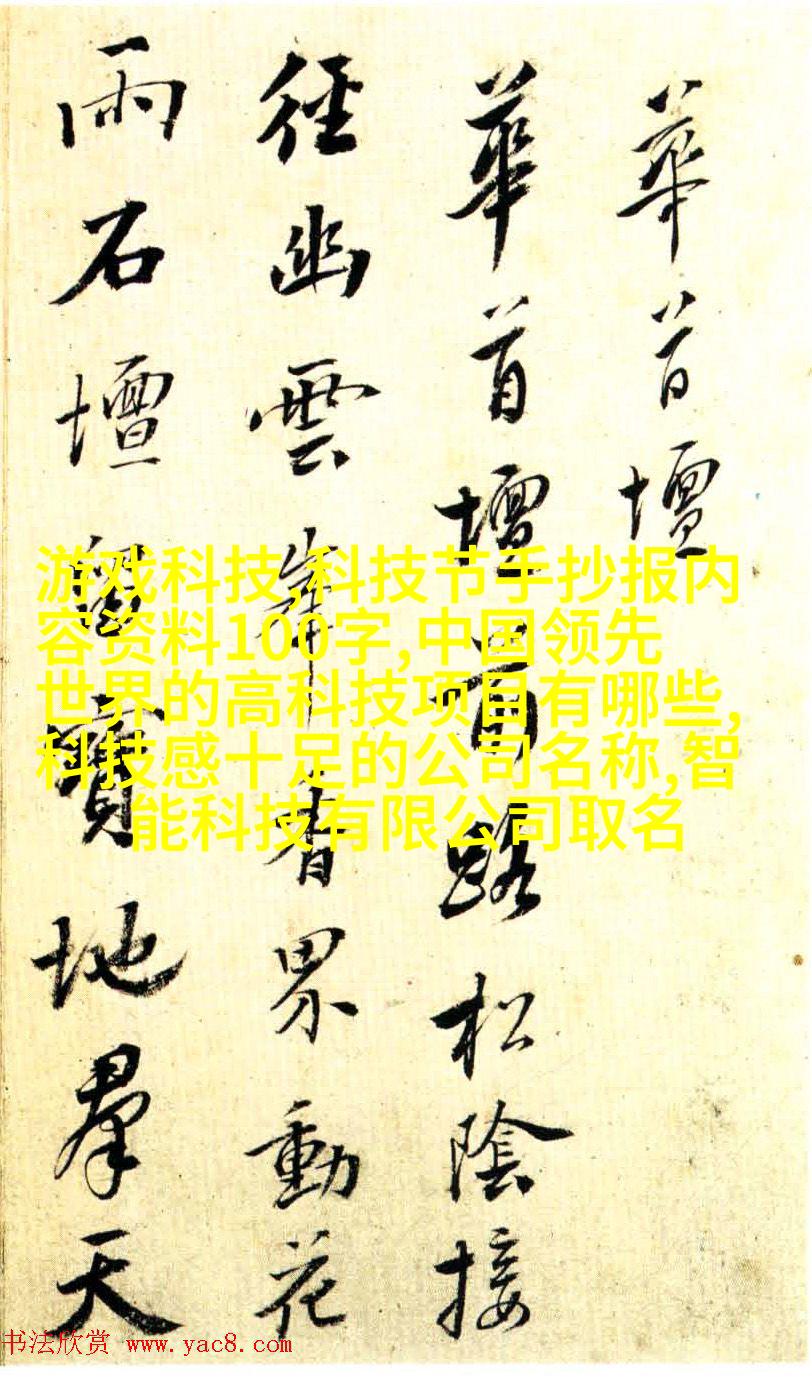 華首壇
華首壇前路松陰接
徑幽雲峯香界動花
雨石壇留寶地羣天
游戏科技,科技节手抄报内
容资料100字,中国领先
世界的高科技项目有哪些,
科技感十足的公司名称,智
能科技有限公司取名
书法欣赏 www.yac8.com